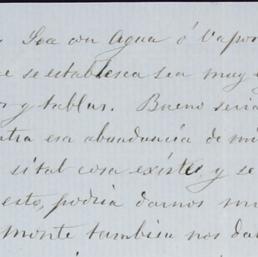 Sea con Agua ó Vapor
se establesca sea muy
y tablas. Bueno seria
era abundáncia de
si tal cosa existe, y se
esto, podria darnos
monte tambien nos dar